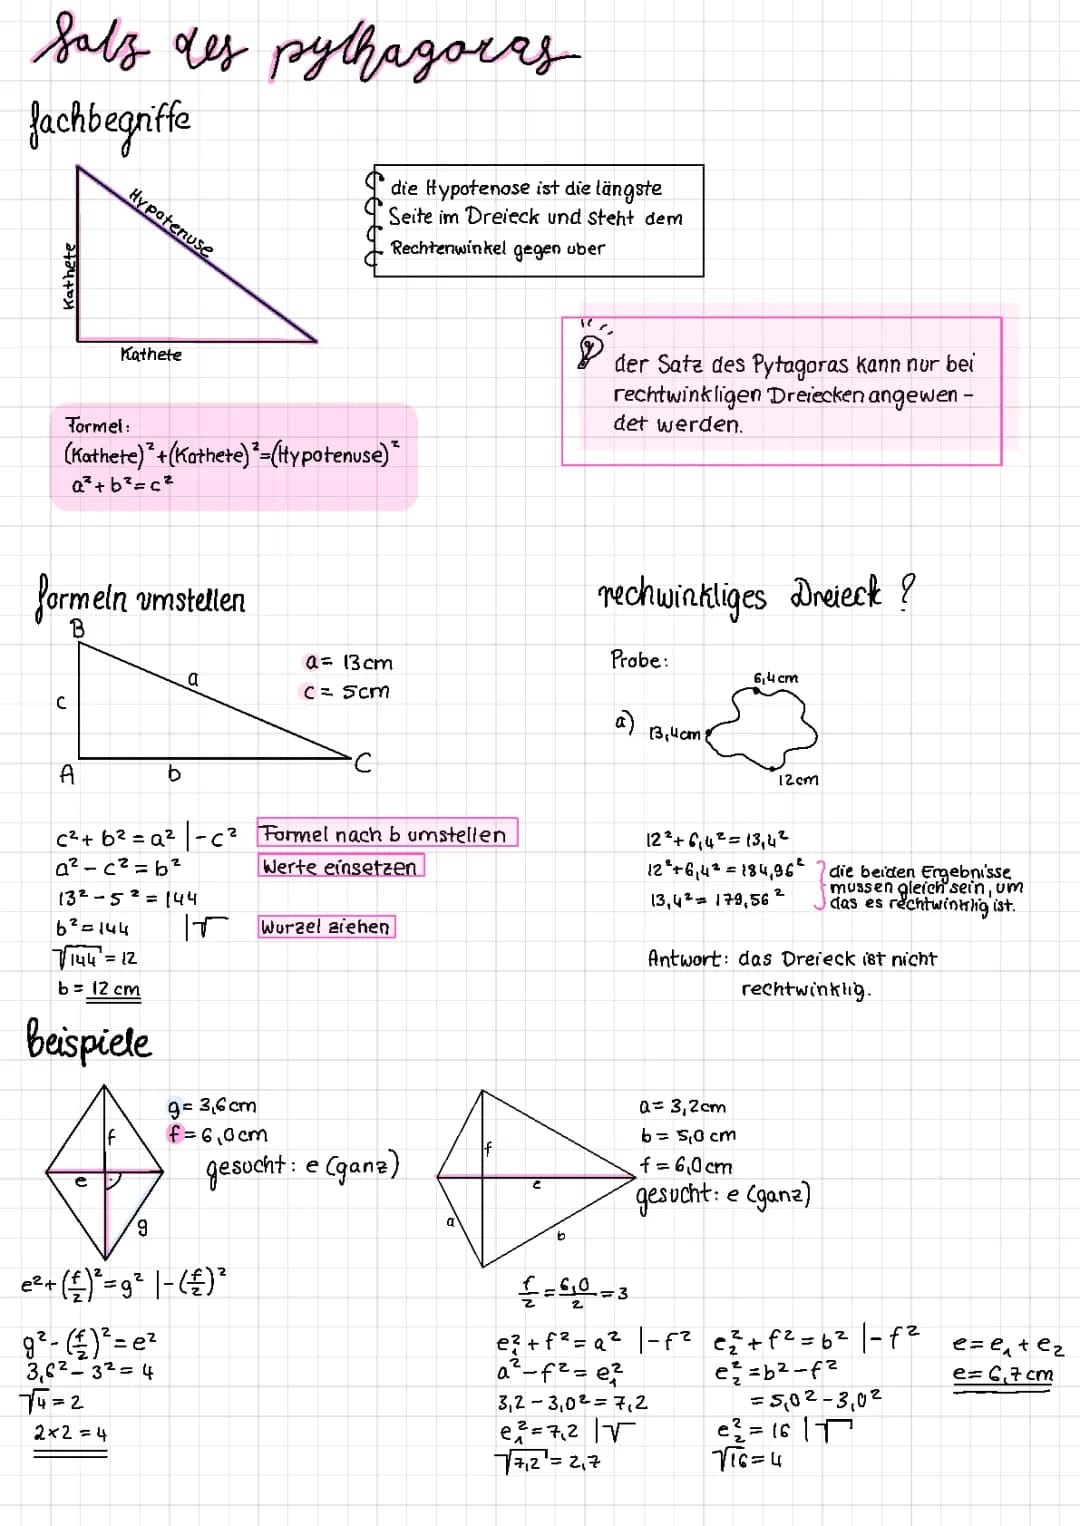 Satz des pythagoras
fachbegriffe
Hypotenuse
Kathete
Kathete
die Hypotenose ist die längste
Seite im Dreieck und steht dem
Rechtenwinkel gegen uber
der Satz des Pytagoras kann nur bei
rechtwinkligen Dreiecken angewen-
det werden.
Formel:
(Kathete)²+(Kathete)²=(Hypotenuse)²
a²+b²=c²
formeln umstellen
B
a
c
A
b
C
a= 13cm
c= 5cm
c²+b²=a² |-c² Formel nach b umstellen
a²-c²=b² Werte einsetzen
13²-5²=144
b²=144 |√ Wurzel ziehen
√144=12
b=12cm
rechwinkliges Dreieck?
Probe:
a)
6,4cm
13,4cm
12cm
12²+6,4²=13,4²
12²+6,4²=184,96²
13,4²=179,56²
die beiden Ergebnisse
mussen gleich sein, um
das es rechtwinklig ist.
Antwort: das Dreieck ist nicht
rechtwinklig.
beispiele
f
e
g
g= 3,6cm
f= 6,0cm
gesucht: e (ganz)
e²+(f/2)²=g² |-(f/2)²
g²-(f/2)²=e²
3,6²-3²=4
√4=2
2×2=4
f
e
a
b
a= 3,2cm
b= 5,0cm
f= 6,0cm
gesucht: e (ganz)
f/2=6,0/2=3
e₁²+f²=a² |-f²
a²-f²=e₁²
3,2-3,0²=7,2
e₁²=7,2 |√
√7,2=2,7
e₂²+f²=b² |-f²
e₂²=b²-f²
=5,0²-3,0²
e₂²=16 |√
√16=4
e=e₁+e₂
e=6,7cm